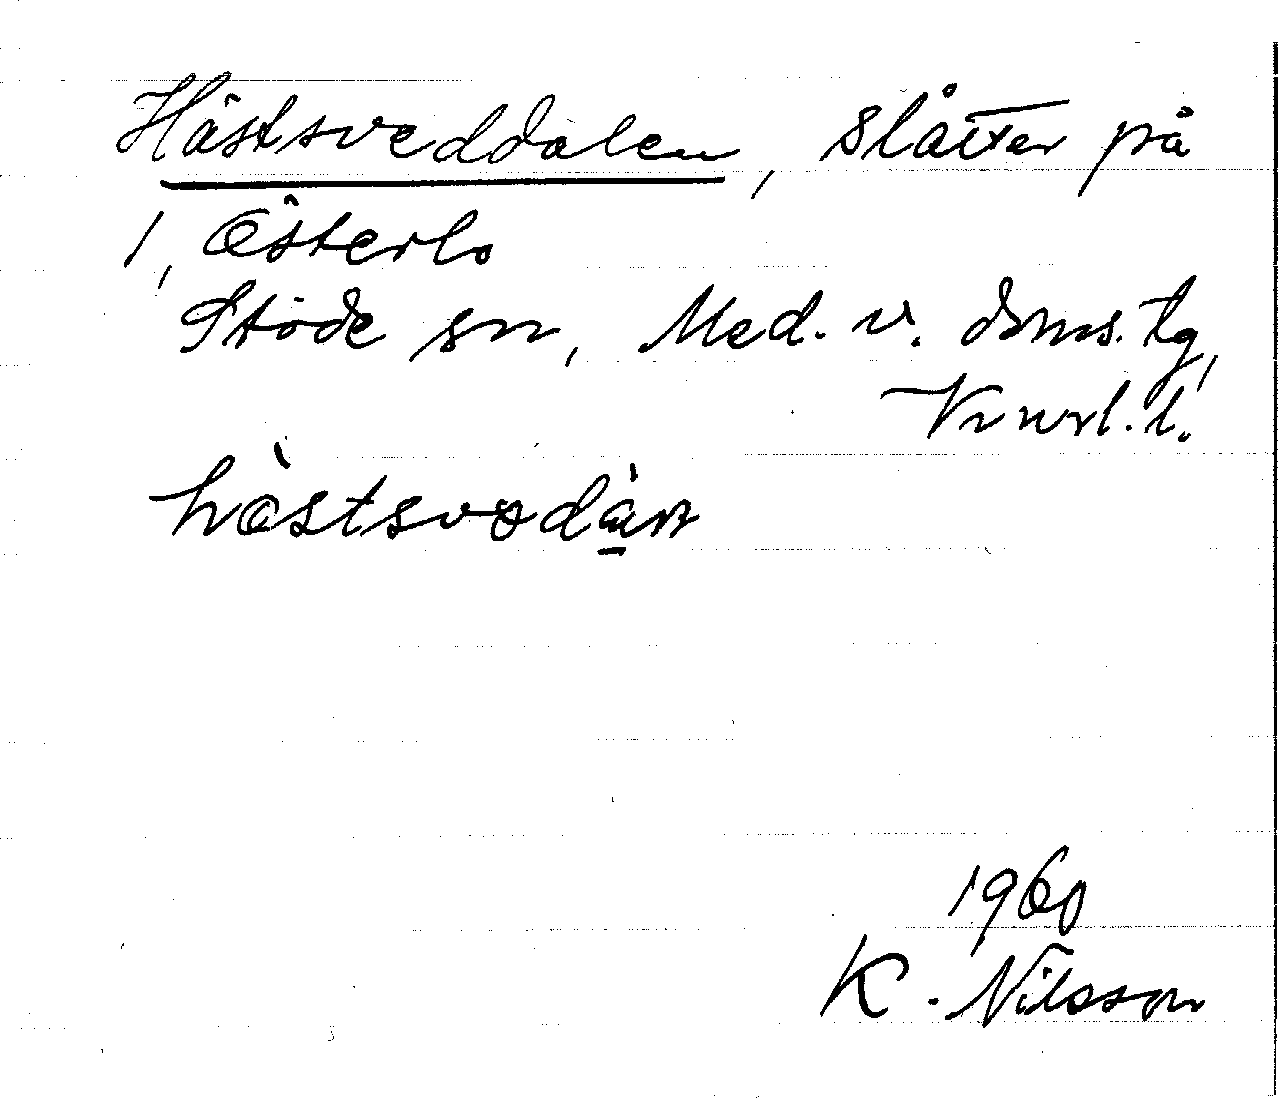 Hästsveddalen, slåtter på
1, Österlo
Stöde sn, Med. v. doms. tg,
Vnorl. l.
1960
K. Nilsson